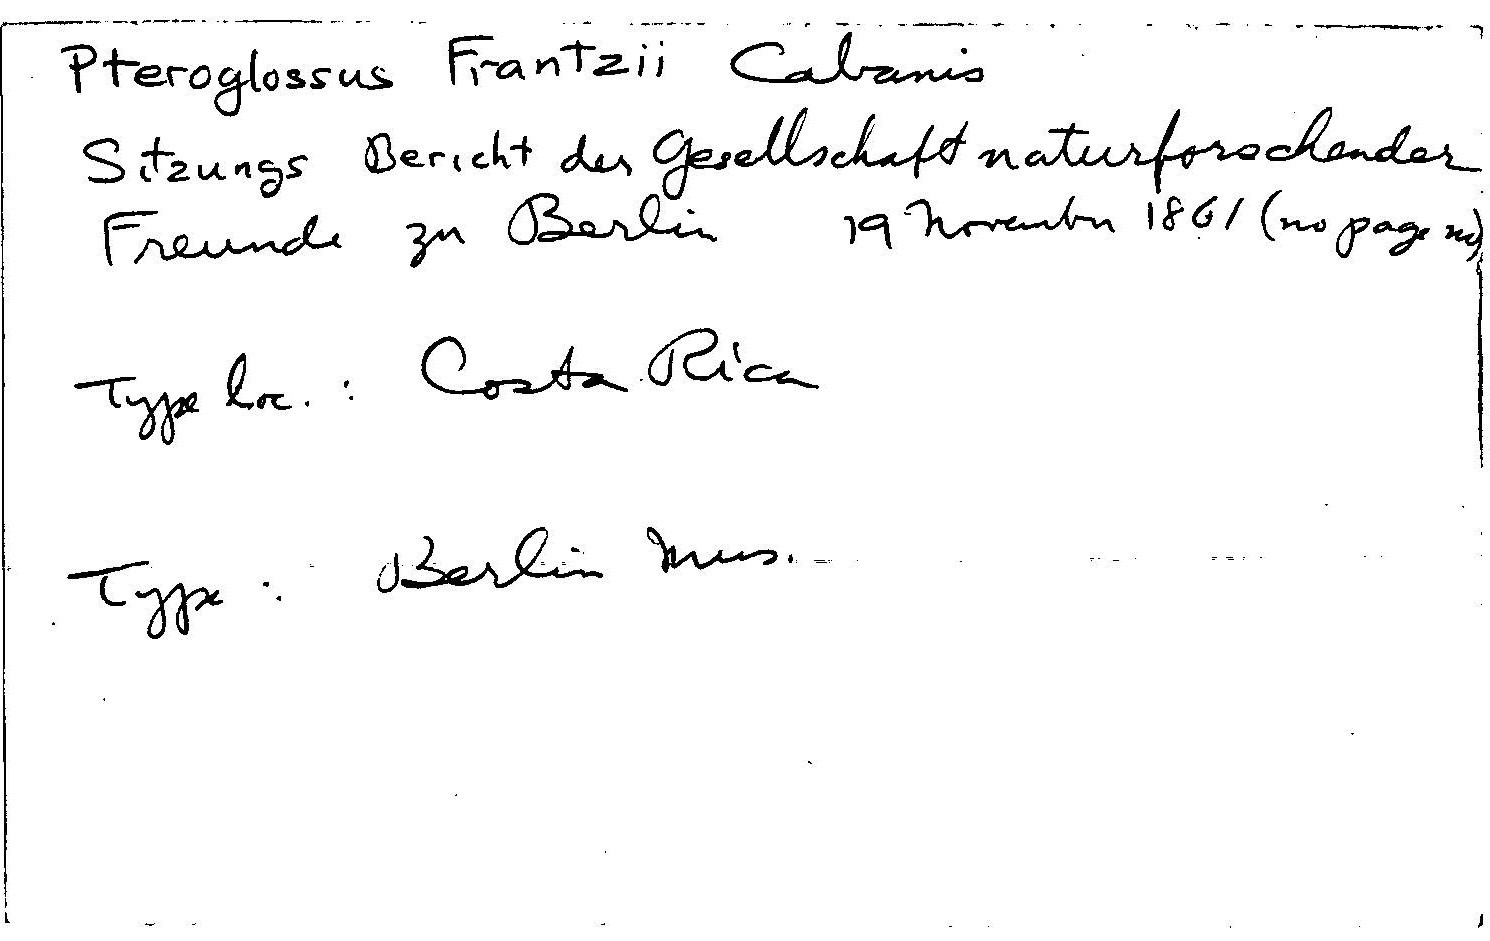 Pteroglossus Frantzii Cabanis
Sitzungs Bericht der Gesellschaft naturforschender
Freunde zu Berlin 19 November 1861 (no page no)
Type loc. : Costa Rica
Type : Berlin Mus.